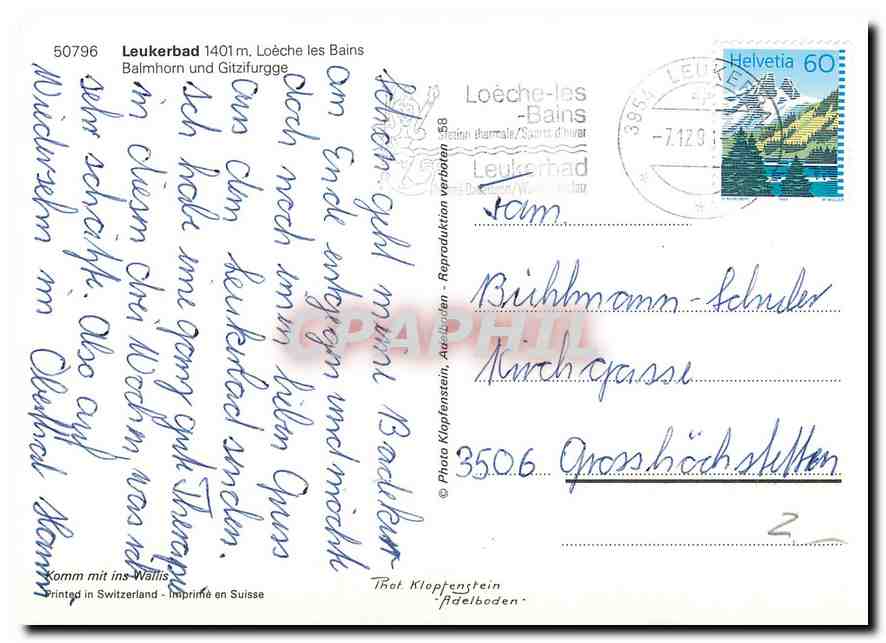 50796 Leukerbad 1401 m, Loèche les Bains
Balmhorn und Gitzifurgge
Schon geht meine Badekur
am Ende entgegen und möchte
doch noch einen lieben Gruss
aus dem Leukerbad senden.
Ich habe eine ganz gute Therapie
in diesen drei Wochen was ich
sehr schätzte. Also auf
Wiedersehn im Oberthal
Komm mit ins Wallis
Printed in Switzerland - Imprimé en Suisse
© Photo Klopfenstein, Adelboden - Reproduktion verboten - 58
Phot. Klopfenstein
-Adelboden-
Loèche-les
-Bains
Station thermale/Sports d'hiver
Leukerbad
3954 LEUKE
-7.12.9
Helvetia 60
Fam.
Bühlmann-Schuler
Kirchgasse
3506 Grosshöchstetten
2.-
CPAPHIL